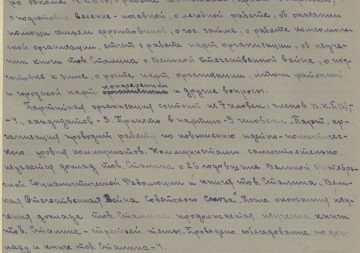 работе
о подготовке весенне-посевной, о лечебной работе, об оказании
помощи семьям фронтовиков, о гос. займе, о работе комсомоль-
ской организации, отчет о работе парт. организации, об изуче-
нии книги тов. Сталина о Великой отечественной войне, о под-
готовке к зиме, о росте парт. организации, итоги районной
и городской парт. конференций и другие вопросы.
Партийная организация состоит из 7 человек: членов В.К.П.(б)-
-4, кандидатов - 3. Принято в партию - 3 человека. Парт. ор-
ганизация проводит работу по повышению идейно-политичес-
кого уровня коммунистов. Коммунистами самостоятельно
изучается доклад тов. Сталина о 26 годовщине Великой Октябрь-
ской Социалистической Революции и книга тов. Сталина, Вели-
кая Отечественная Война Советского Союза". После окончания изу-
чения доклада тов. Сталина продолжается изучение книги
тов. Сталина - третьей темы. Проведено собеседование по док-
ладу и книге тов. Сталина - 4.